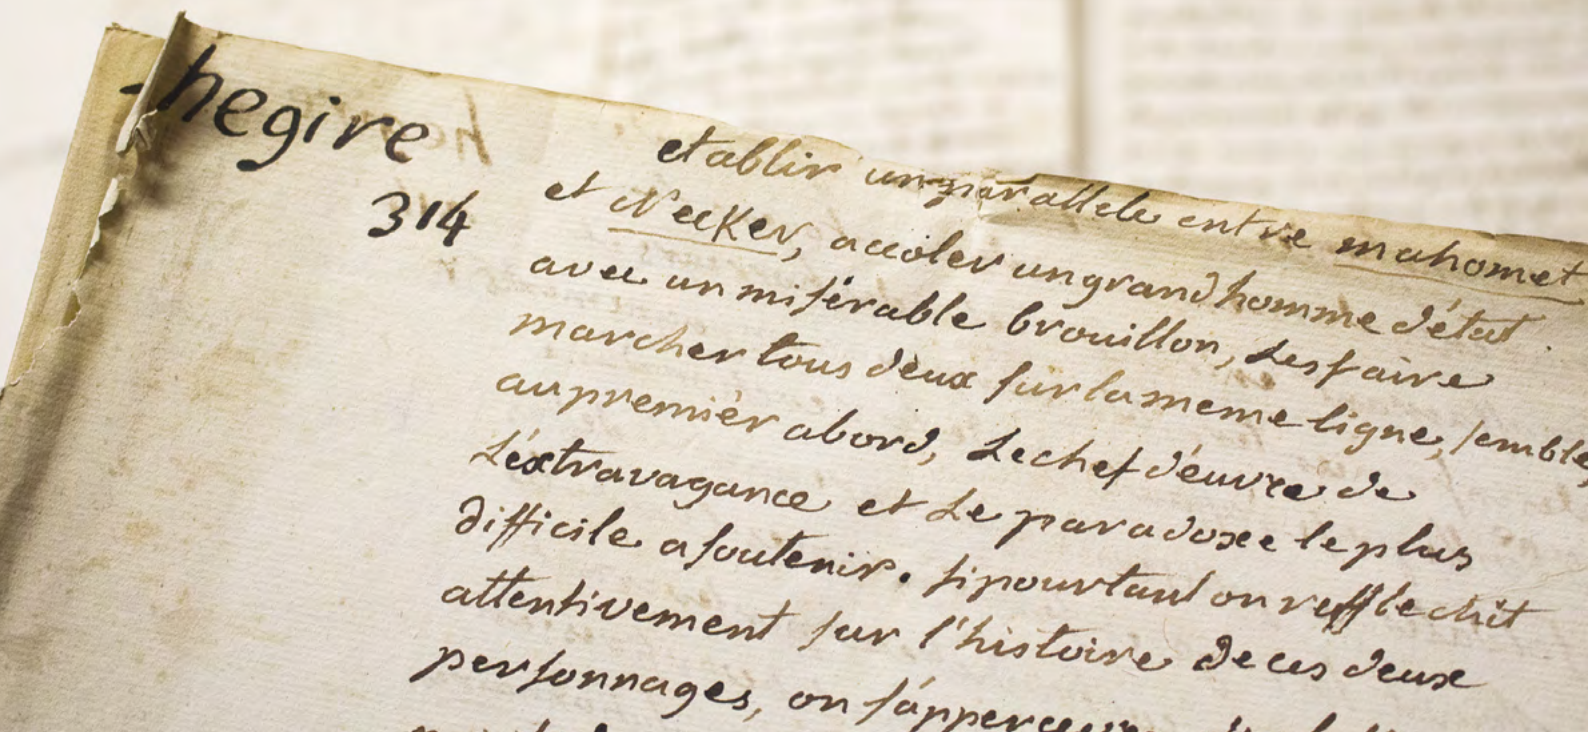 hegire
314
etablir un parallele entre mahomet
et Necker, accoler un grand homme d'état
avec un misérable brouillon, Les faire
marcher tous deux sur la meme ligne, semble,
au premiér abord, Le chef d'euvre de
L'éxtravagance et Le paradoxe le plus
difficile a soutenir. si pourtant on refflechit
attentivement sur l'histoire de ces deux
personnages, on s'apperceu